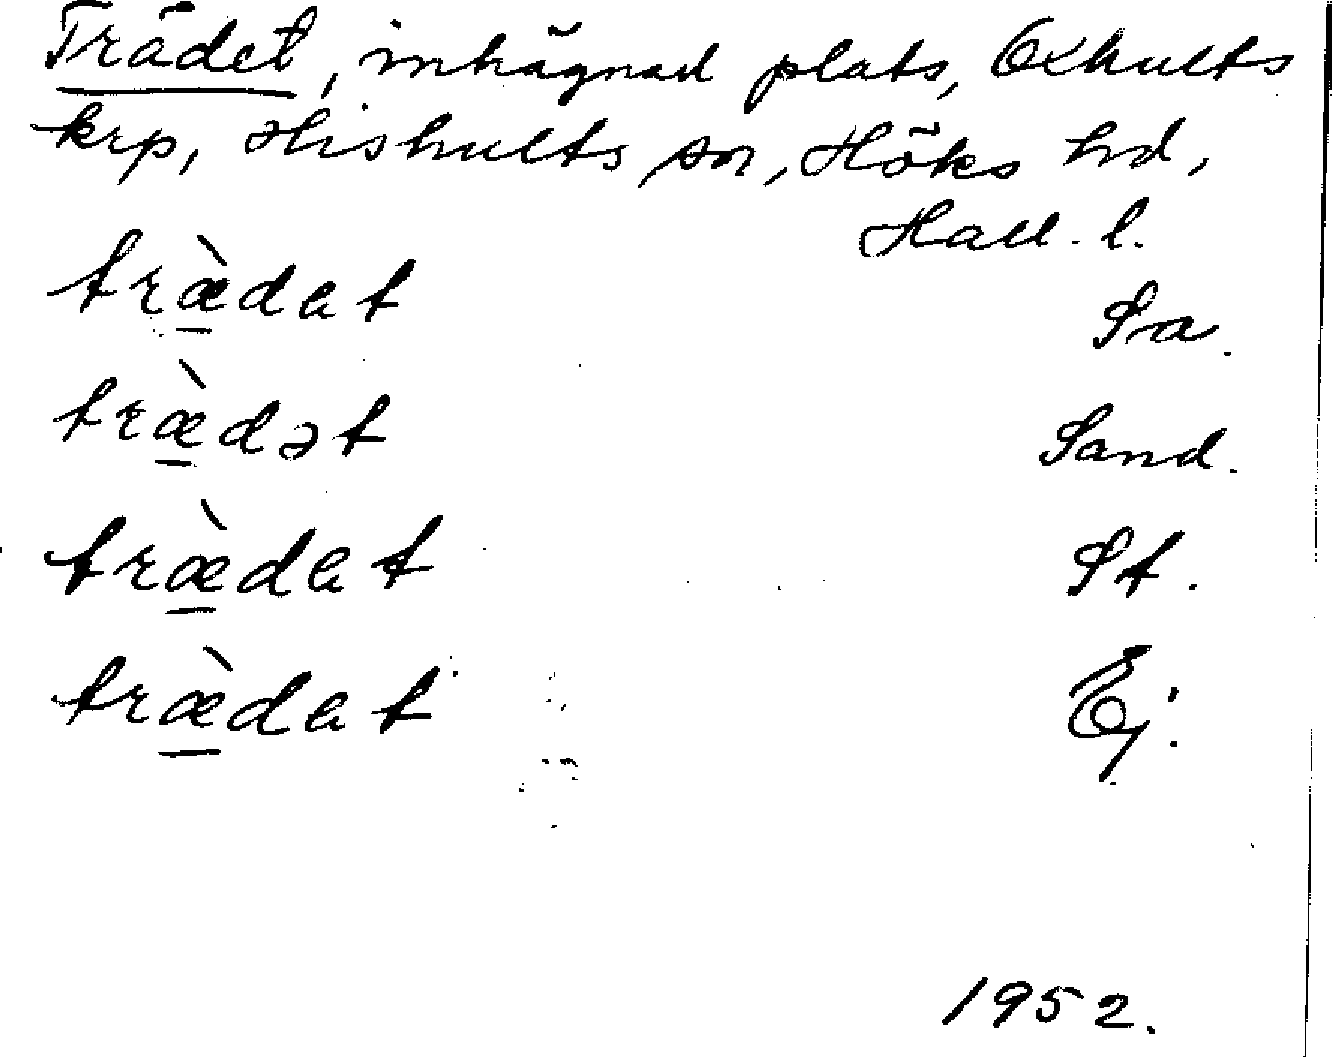 Trädet, inhägnad plats, Oxhults
krp, Hishults sn, Höks hd,
Hall. l.
træ̀dat Sa.
træ̀dət Sand.
træ̀dat St.
træ̀dat Ej.
1952.